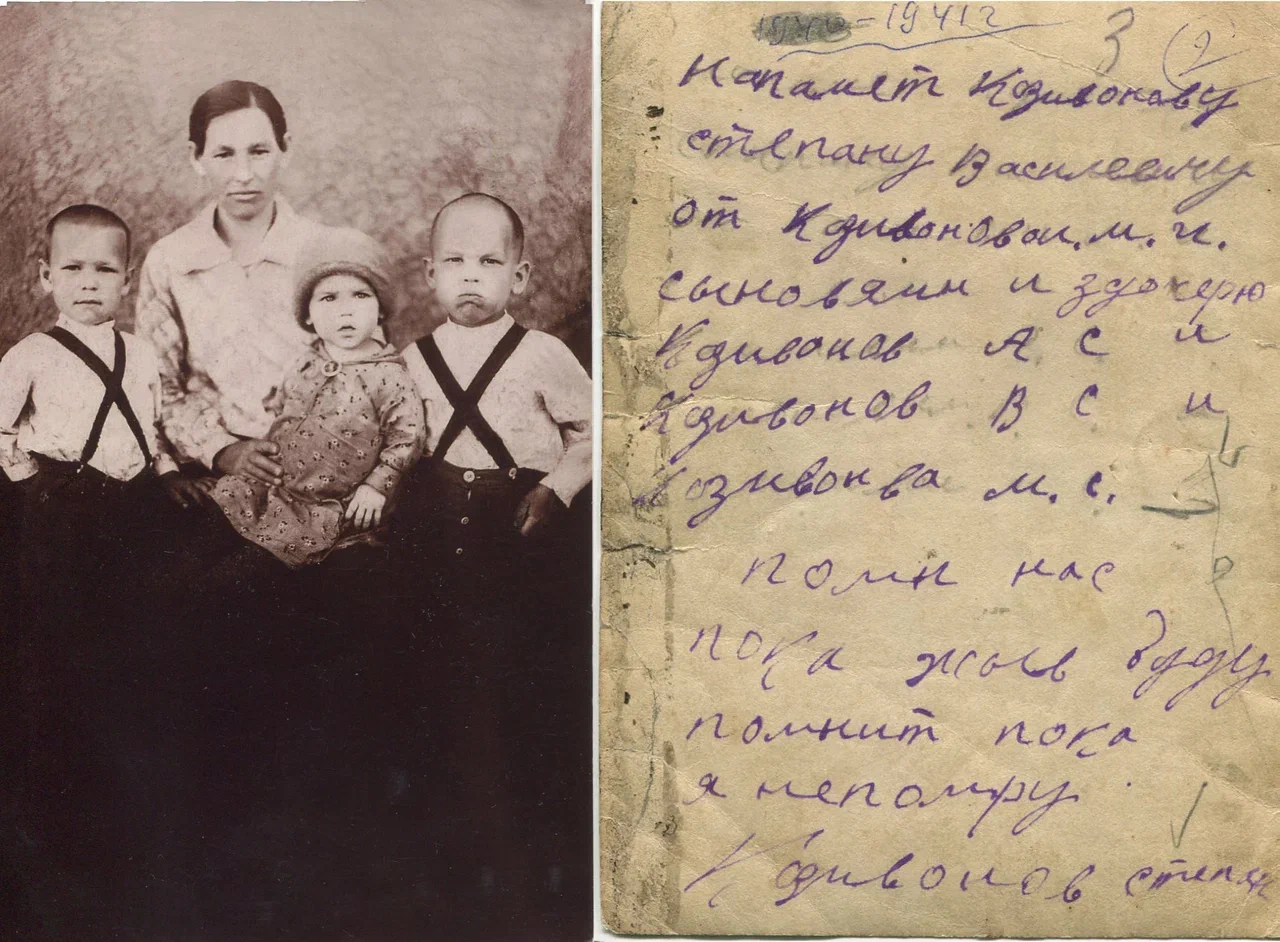 1940=1941г
3 (2)
напамет Кодивонову
степану Василевичу
от Кодивоновои. м. и.
сыновяин и здочерю
Кодивонов А С и
Кодивонов В С и
Кодивонва м. с.
помн нас
пока жыв буду
помнит пока
я непомру.
Кодивонов степан